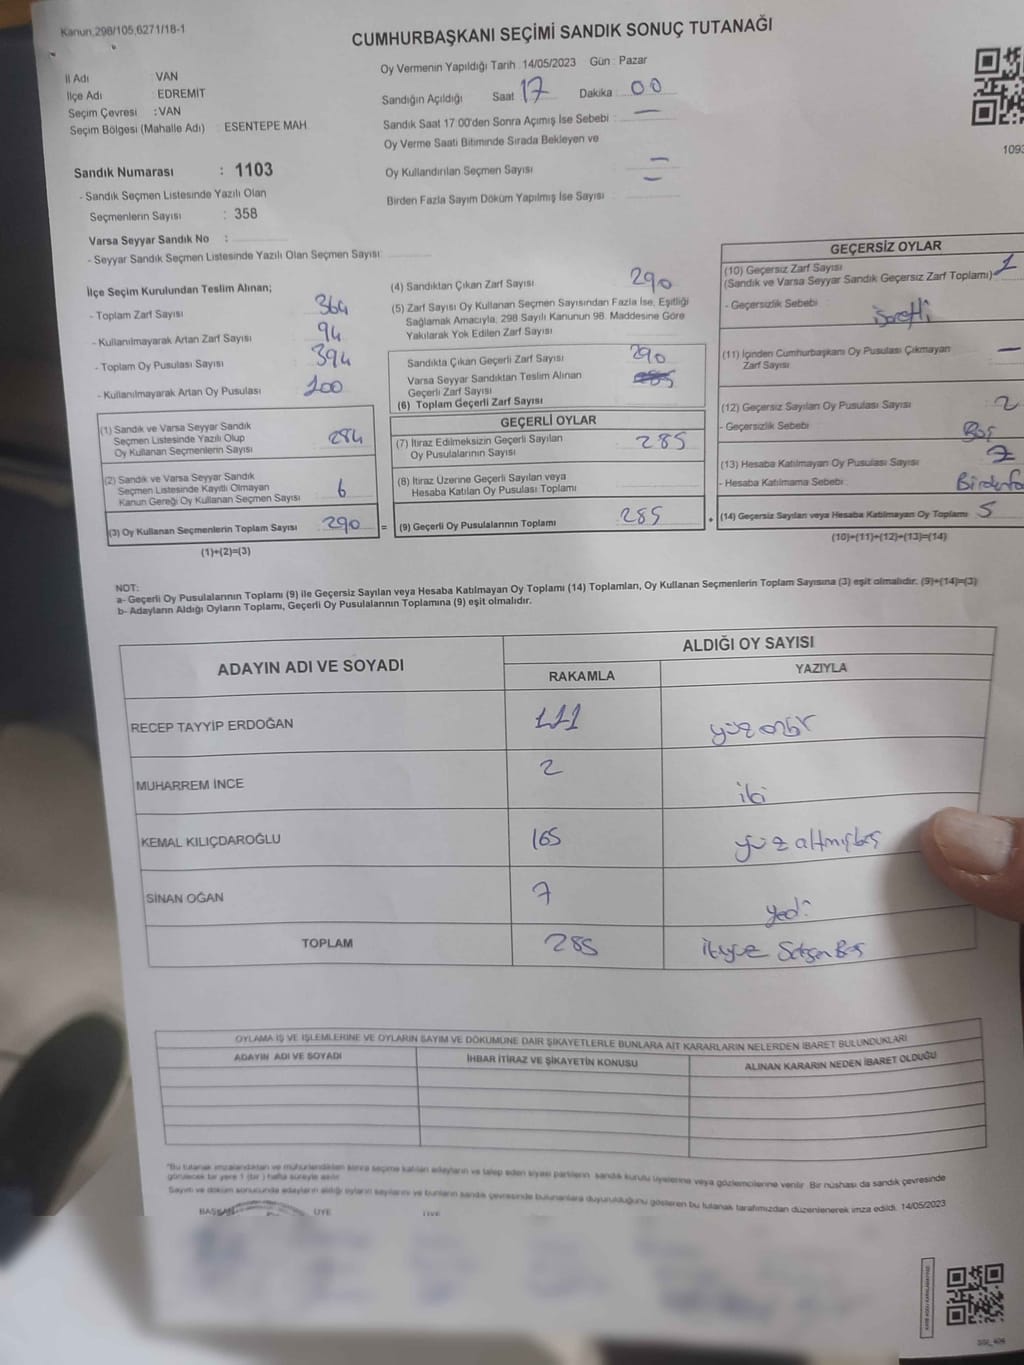 Kanun,298/105,6271/18-1
CUMHURBAŞKANI SEÇİMİ SANDIK SONUÇ TUTANAĞI
İl Adı : VAN
İlçe Adı : EDREMİT
Seçim Çevresi : VAN
Seçim Bölgesi (Mahalle Adı) : ESENTEPE MAH.
Oy Vermenin Yapıldığı Tarih : 14/05/2023 Gün : Pazar
Sandığın Açıldığı Saat 17 Dakika : 00
Sandık Saat 17:00'den Sonra Açımış İse Sebebi : —
Oy Verme Saati Bitiminde Sırada Bekleyen ve
Oy Kullandırılan Seçmen Sayısı —
Birden Fazla Sayım Döküm Yapılmış İse Sayısı : —
1093
Sandık Numarası : 1103
- Sandık Seçmen Listesinde Yazılı Olan
Seçmenlerin Sayısı : 358
Varsa Seyyar Sandık No :
- Seyyar Sandık Seçmen Listesinde Yazılı Olan Seçmen Sayısı:
İlçe Seçim Kurulundan Teslim Alınan;
- Toplam Zarf Sayısı 364
- Kullanılmayarak Artan Zarf Sayısı 94
- Toplam Oy Pusulası Sayısı 394
- Kullanılmayarak Artan Oy Pusulası 100
(1) Sandık ve Varsa Seyyar Sandık
Seçmen Listesinde Yazılı Olup
Oy Kullanan Seçmenlerin Sayısı 284
(2) Sandık ve Varsa Seyyar Sandık
Seçmen Listesinde Kayıtlı Olmayan
Kanun Gereği Oy Kullanan Seçmen Sayısı 6
(3) Oy Kullanan Seçmenlerin Toplam Sayısı 290
(1)+(2)=(3)
(4) Sandıktan Çıkan Zarf Sayısı 290
(5) Zarf Sayısı Oy Kullanan Seçmen Sayısından Fazla İse, Eşitliği
Sağlamak Amacıyla, 298 Sayılı Kanunun 98. Maddesine Göre
Yakılarak Yok Edilen Zarf Sayısı
Sandıkta Çıkan Geçerli Zarf Sayısı 290
Varsa Seyyar Sandıktan Teslim Alınan
Geçerli Zarf Sayısı 285
(6) Toplam Geçerli Zarf Sayısı
GEÇERLİ OYLAR
(7) İtiraz Edilmeksizin Geçerli Sayılan
Oy Pusulalarının Sayısı 285
(8) İtiraz Üzerine Geçerli Sayılan veya
Hesaba Katılan Oy Pusulası Toplamı
= (9) Geçerli Oy Pusulalarının Toplamı 285 +
GEÇERSİZ OYLAR
(10) Geçersiz Zarf Sayısı
(Sandık ve Varsa Seyyar Sandık Geçersiz Zarf Toplamı) 1
- Geçersizlik Sebebi : işaretli
(11) İçinden Cumhurbaşkanı Oy Pusulası Çıkmayan
Zarf Sayısı —
(12) Geçersiz Sayılan Oy Pusulası Sayısı 2
- Geçersizlik Sebebi : Boş
(13) Hesaba Katılmayan Oy Pusulası Sayısı 2
- Hesaba Katılmama Sebebi : Birdenfa
(14) Geçersiz Sayılan veya Hesaba Katılmayan Oy Toplamı 5
(10)+(11)+(12)+(13)=(14)
NOT:
a- Geçerli Oy Pusulalarının Toplamı (9) ile Geçersiz Sayılan veya Hesaba Katılmayan Oy Toplamı (14) Toplamları, Oy Kullanan Seçmenlerin Toplam Sayısına (3) eşit olmalıdır. (9)+(14)=(3)
b- Adayların Aldığı Oyların Toplamı, Geçerli Oy Pusulalarının Toplamına (9) eşit olmalıdır.
ADAYIN ADI VE SOYADI
ALDIĞI OY SAYISI
RAKAMLA YAZIYLA
RECEP TAYYİP ERDOĞAN 111 yüz onbir
MUHARREM İNCE 2 iki
KEMAL KILIÇDAROĞLU 165 yüz altmışbeş
SİNAN OĞAN 7 yedi
TOPLAM 285 ikiyüz Seksen Beş
OYLAMA İŞ VE İŞLEMLERİNE VE OYLARIN SAYIM VE DÖKÜMÜNE DAİR ŞİKAYETLERLE BUNLARA AİT KARARLARIN NELERDEN İBARET BULUNDUKLARI
ADAYIN ADI VE SOYADI İHBAR İTİRAZ VE ŞİKAYETİN KONUSU ALINAN KARARIN NEDEN İBARET OLDUĞU
"Bu tutanak imzalandıktan ve mühürlendikten sonra seçime katılan adayların ve talep eden siyasi partilerin sandık kurulu üyelerine veya gözlemcilerine verilir. Bir nüshası da sandık çevresinde
görülecek bir yere 1 (bir) hafta süreyle asılır.
Sayım ve döküm sonucunda adayların aldığı oyların sayılarını ve bunların sandık çevresinde bulunanlara duyurulduğunu gösteren bu tutanak tarafımızdan düzenlenerek imza edildi. 14/05/2023
BAŞKAN ÜYE ÜYE